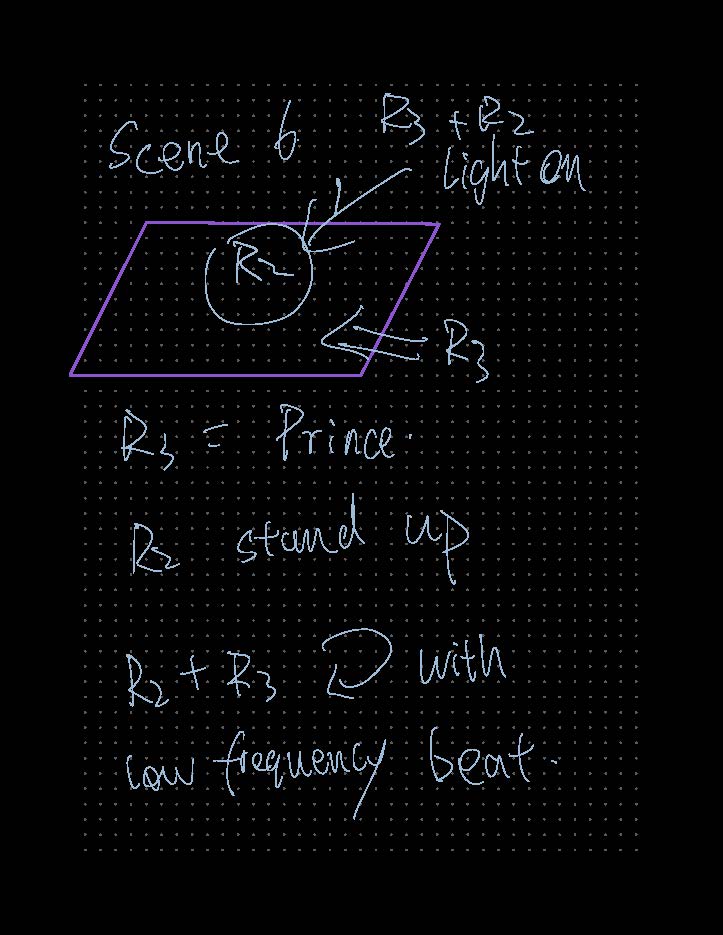 Scene 6
R3 + R2
Light on
R2
R3
R3 = Prince.
R2 stand up
R2 + R3 with
low frequency beat.